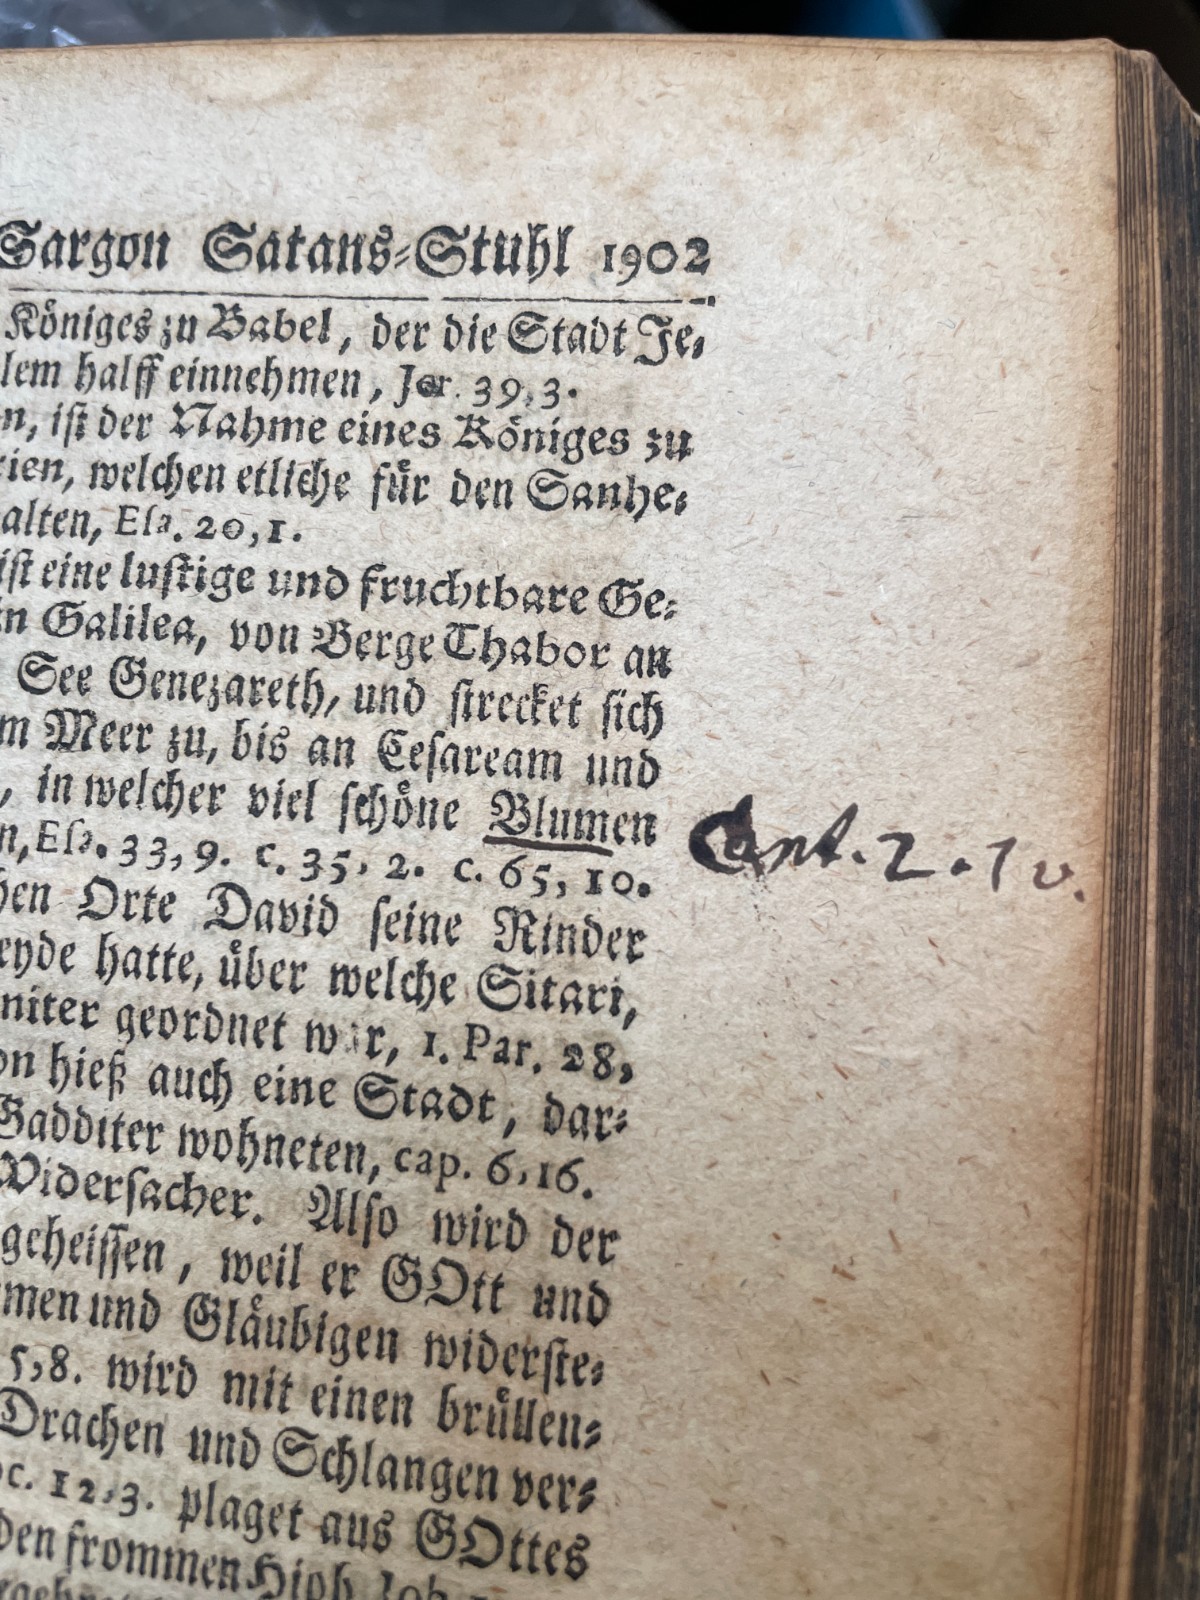 Sargon Satans-Stuhl 1902
Königes zu Babel, der die Stadt Je-
lem halff einnehmen, Jer. 39,3.
n, ist der Nahme eines Königes zu
rien, welchen etliche für den Sanhe-
alten, Esa. 20,1.
ist eine lustige und fruchtbare Ge-
in Galilea, von Berge Thabor an
See Genezareth, und strecket sich
m Meer zu, bis an Cesaream und
, in welcher viel schöne Blumen
n, Esa. 33,9. c. 35, 2. c. 65, 10.
Cant. 2. 1 v.
hen Orte David seine Rinder
eyde hatte, über welche Sitari,
niter geordnet war, 1. Par. 28,
on hieß auch eine Stadt, dar-
Gadditer wohneten, cap. 6,16.
Widersacher. Also wird der
geheissen, weil er GOtt und
men und Gläubigen widerste-
5,8. wird mit einen brüllen-
Drachen und Schlangen ver-
oc. 12,3. plaget aus GOttes
den frommen Hiob